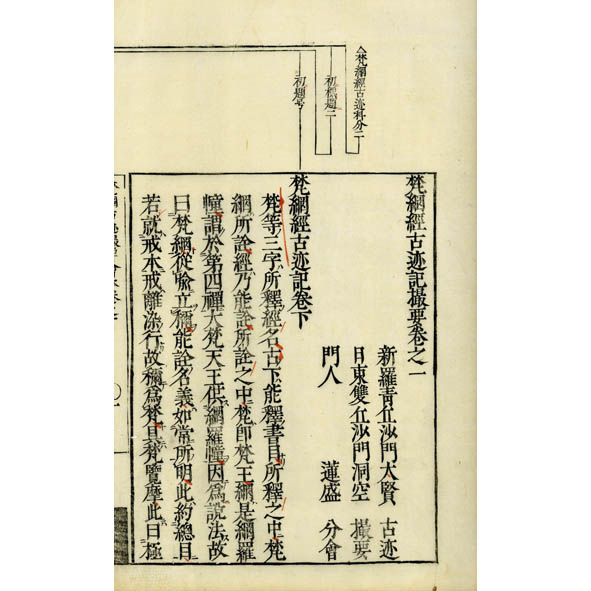 梵網經古迹科分二
初標題二
初題号
梵網經古迹記撮要卷之一
新羅青丘沙門大賢 古迹
日東雙丘沙門洞空 撮要
門人 蓮盛 分會
梵網經古迹記卷下
梵等三字所釋經名古下能釋書目所釋之中梵
網所詮經乃能詮所詮之中梵即梵王網是網羅
幢謂於第四禪大梵天王供網羅幢因為說法故
曰梵網從喻立稱能詮名義如常所明此約總目
若就戒本戒離染行故稱為梵具梵覽摩此曰極